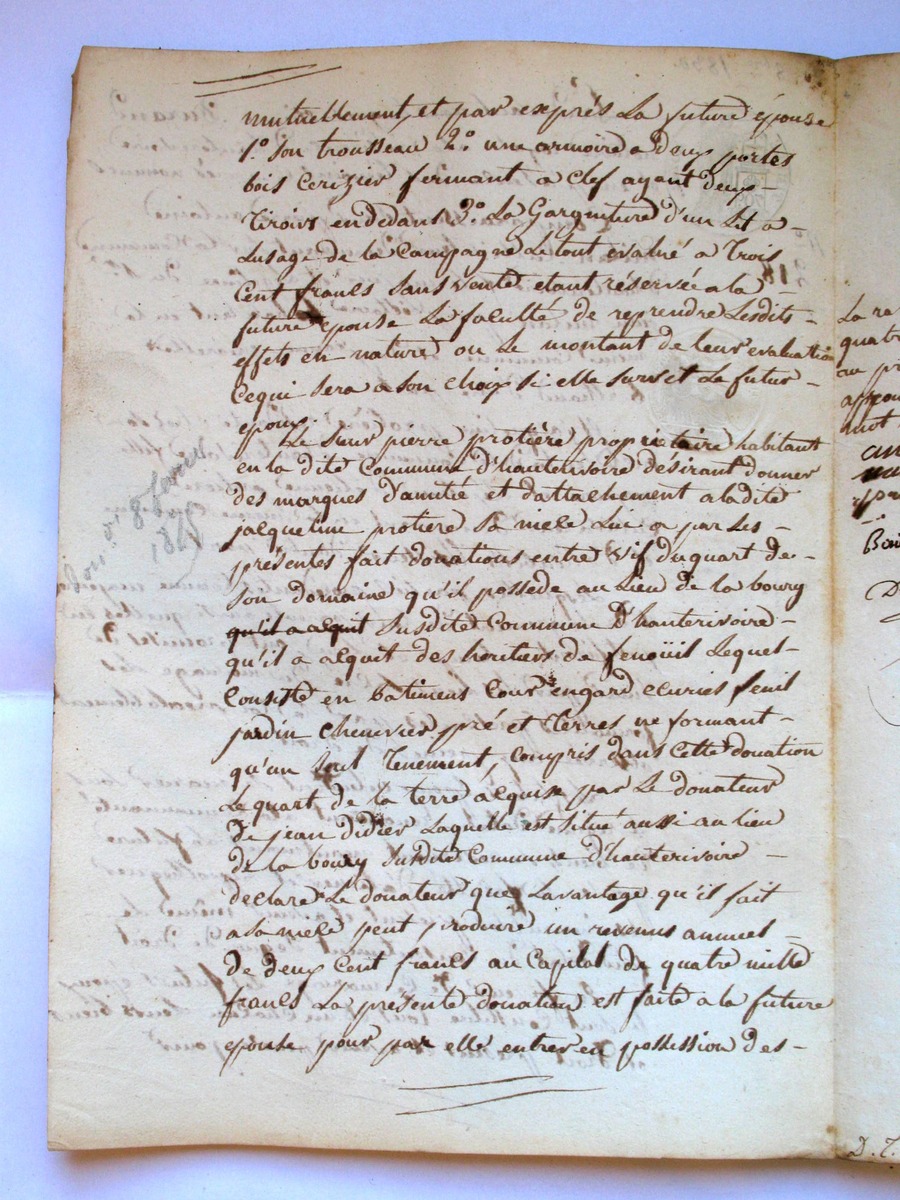 mutuellement, et par exprès La future épouse
1.° son trousseau 2.° une armoire a deux portes
bois Cerizier fermant a Clef ayant deux
Tiroirs endedans 3.° La Garguiture d'un Lit a
Lusage de la Campagne Le tout evalué a Trois
Cent francs sans vente etant réservée a la
future epouse La faculté de reprendre Lesdits
effets en nature ou Le montant de leur evaluation
Cequi sera a son Choix si elle survit Le futur
epoux.
Le sieur pierre protière propriétaire habitant
en la dite Commune D'hauterivoire désirant donner
des marques D'amitié et Dattachement a ladite
jacqueline protière sa niece Lui a par Les
présentes fait donations entre vif du quart de
son domaine qu'il possede au Lieu de la boury
qu'il a alquit susdite Commune D'hauterivoire
qu'il a alquit des heritiers de fenoüil Lequel
Consiste en batimens Cour engard ecuries fenil
jardin Chenevier pré et Terres ne formant
qu'un seul Tenement, Compris dans Cette donation
Le quart de la terre alquise par Le donateur
De jean didier Laquelle est situé aussi au lieu
de la boury susdite Commune d'hauterivoire
declare Le donateur que Lavantage qu'il fait
a sa niece peut produire un revenus annuel
de deux Cent francs au Capital de quatre mille
francs La présente donation est faite a la future
epouse pour par elle entrer en possession des
8 fevrier
La re
quatr
au pr
mot
D. T.